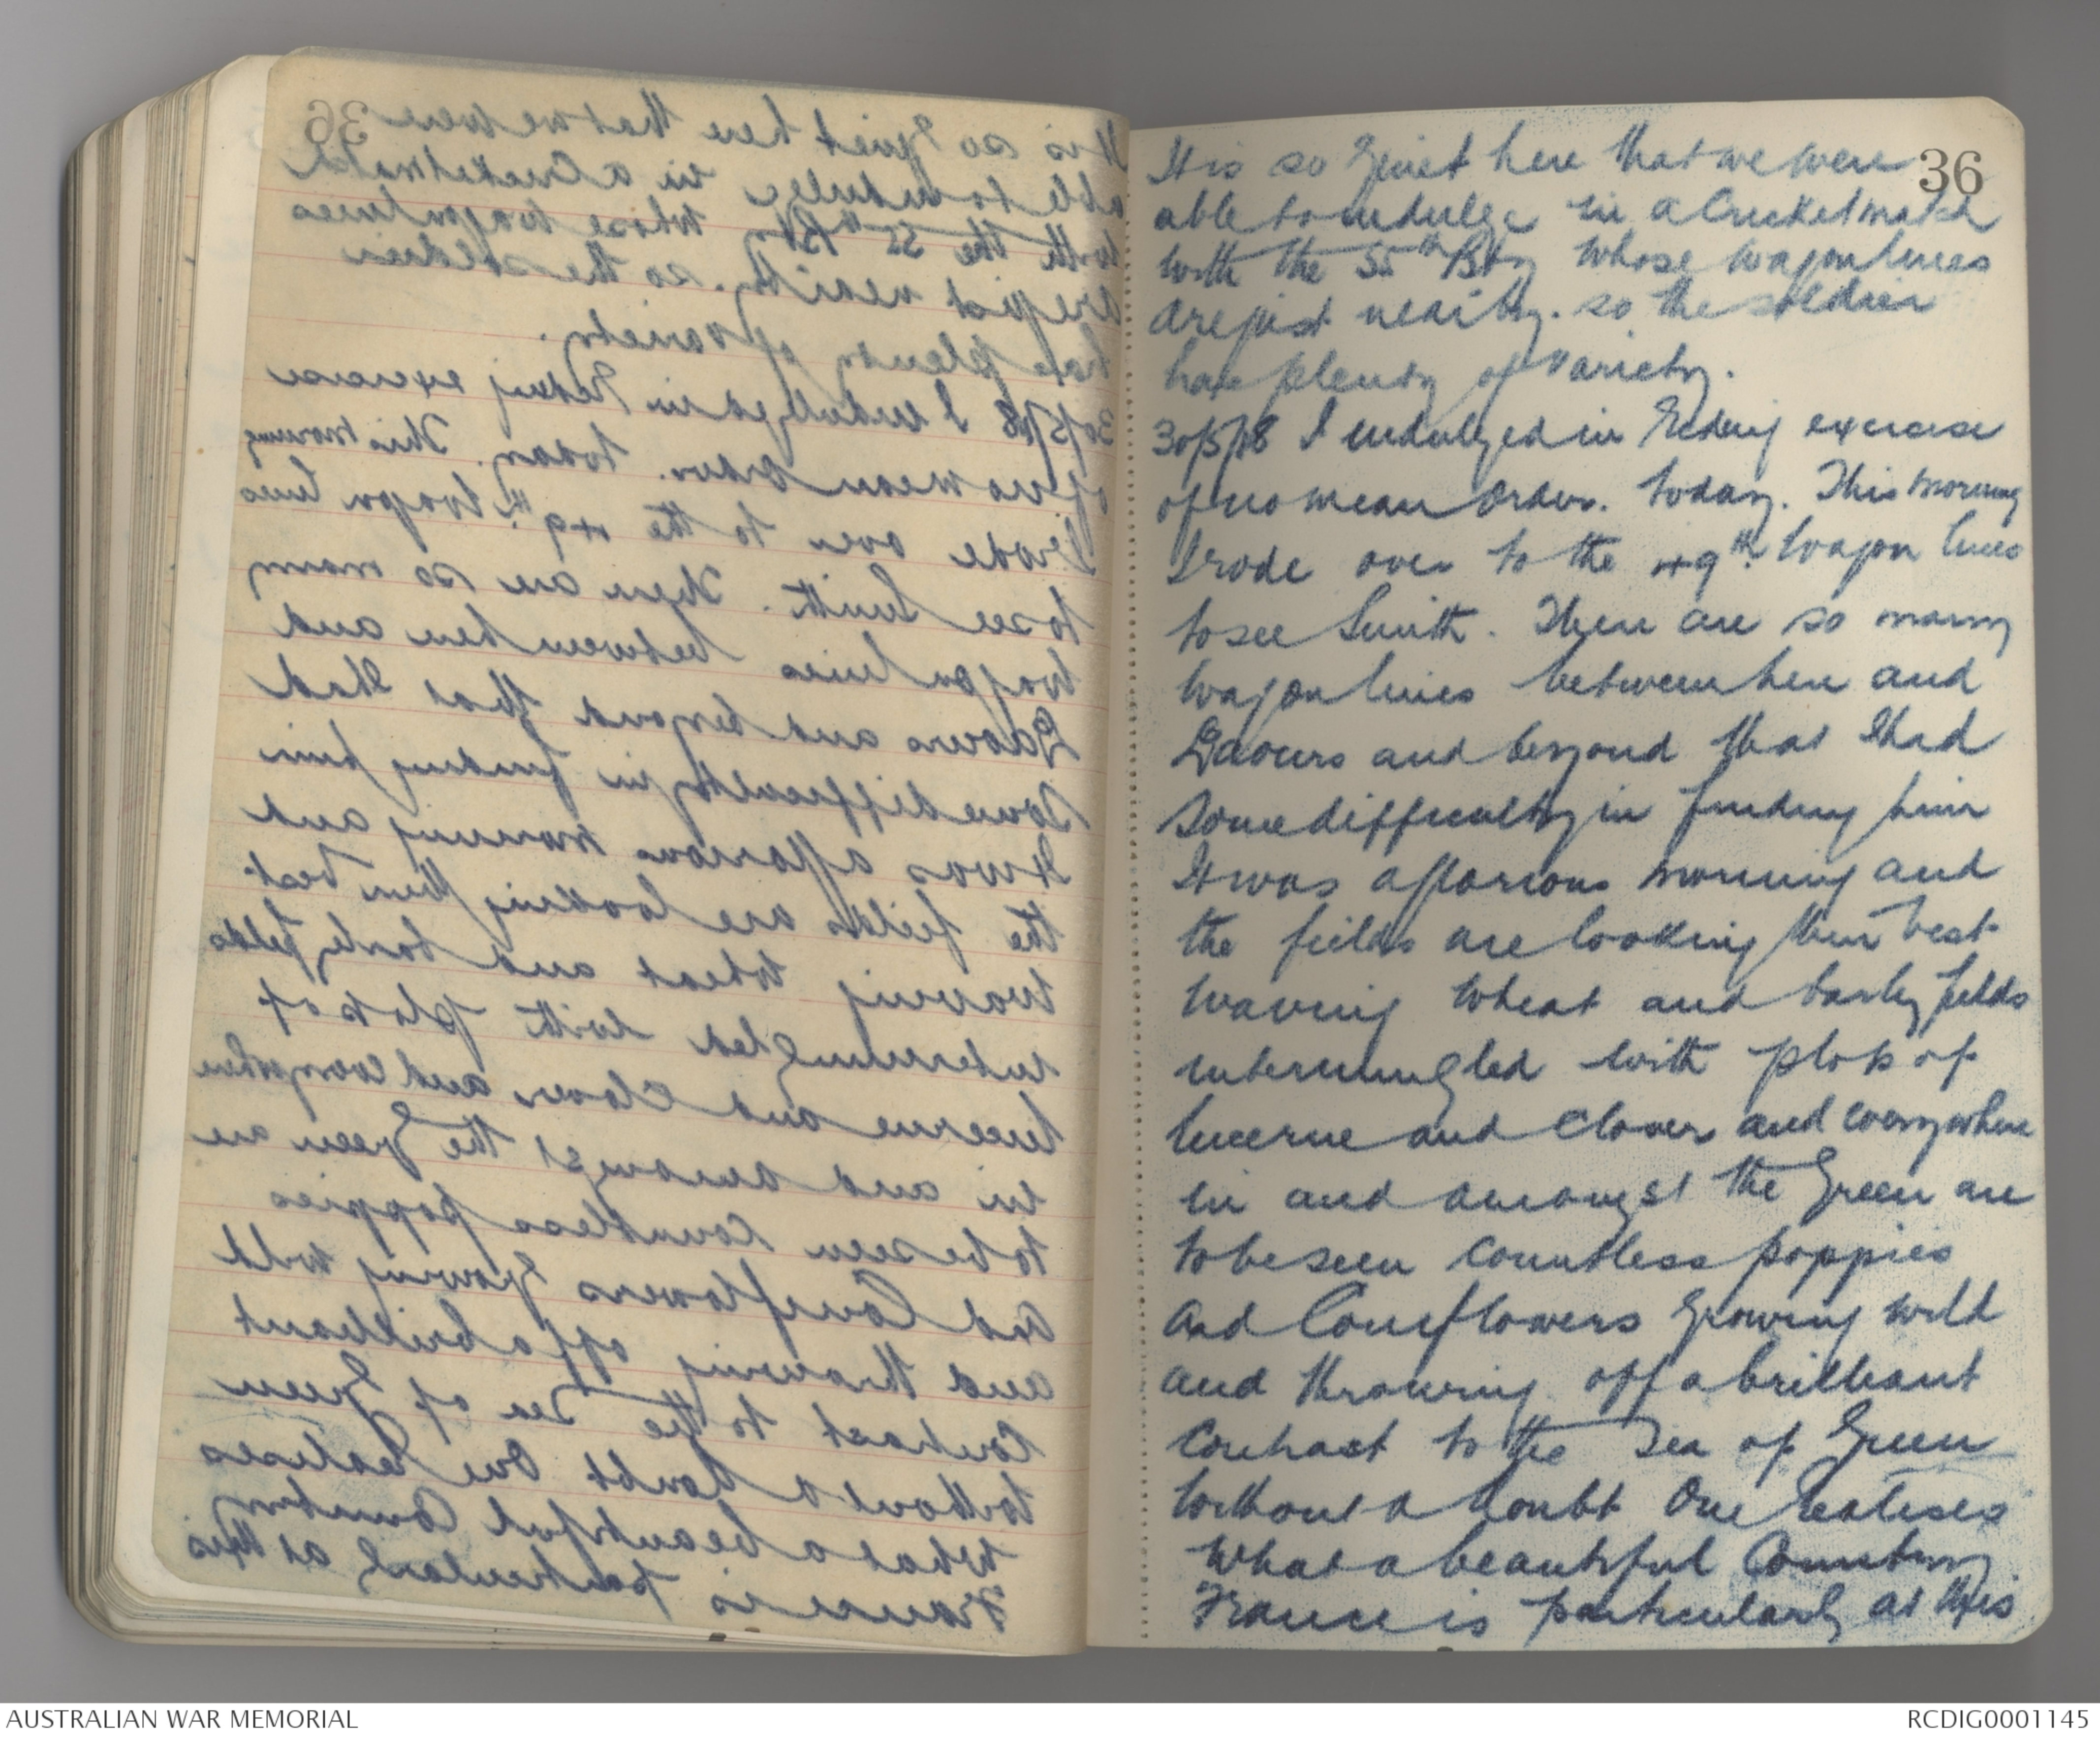 36
It is so quiet here that we were
able to indulge in a Cricket match
with the 55th Bty whose wagon lines
are just nearby. so the soldier
has plenty of variety.
30/5/18 I indulged in riding exercise
of no mean order. today. This morning
I rode over to the 49th wagon lines
to see Smith. There are so many
wagon lines between here and
Daours and beyond that I had
some difficulty in finding him
It was a glorious morning and
the fields are looking their best
waving wheat and barley fields
intermingled with plots of
lucerne and clover and everywhere
in and amongst the green are
to be seen countless poppies
and Cornflowers growing wild
and throwing off a brilliant
contrast to the sea of green
without a doubt one realises
what a beautiful Country
France is particularly at this
AUSTRALIAN WAR MEMORIAL
RCDIG0001145